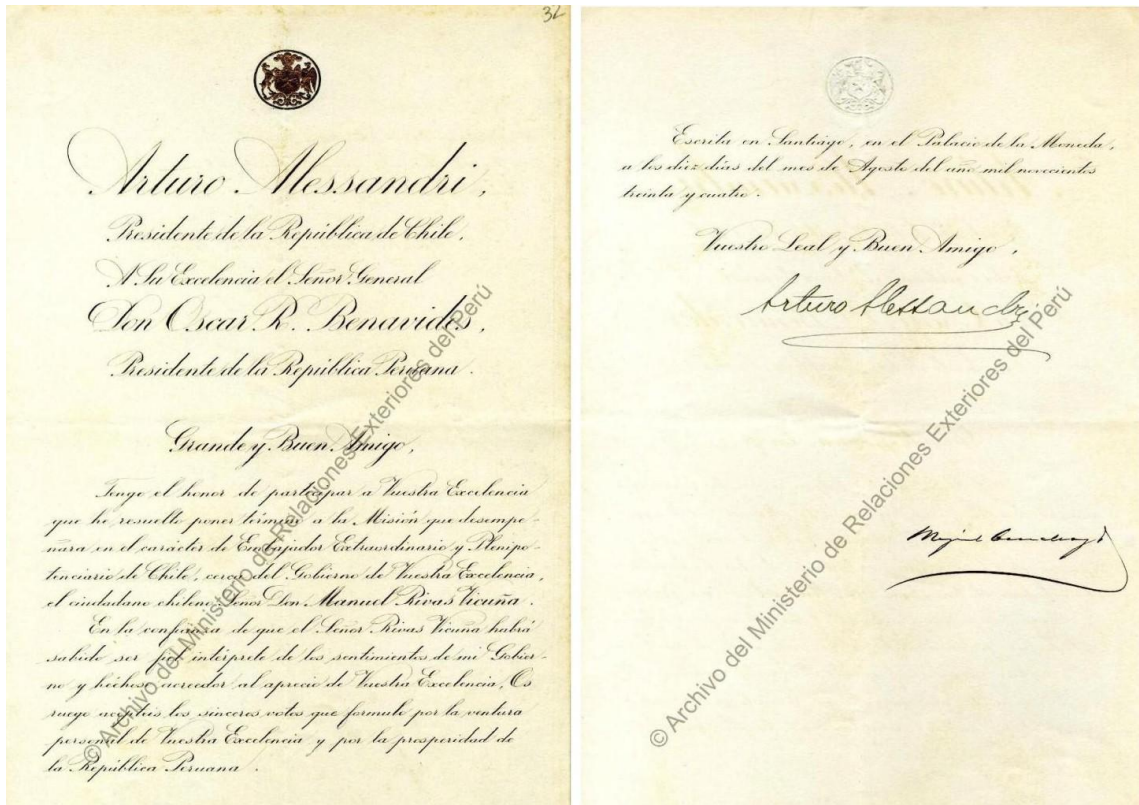 32
Arturo Alessandri,
Presidente de la República de Chile,
A Su Excelencia el Señor General
Don Oscar R. Benavides,
Presidente de la República Peruana.
Grande y Buen Amigo,
Tengo el honor de participar a Vuestra Excelencia
que he resuelto poner término a la Misión que desempe-
ñara en el carácter de Embajador Extraordinario y Plenipo-
tenciario de Chile, cerca del Gobierno de Vuestra Excelencia,
el ciudadano chileno Señor Don Manuel Rivas Vicuña.
En la confianza de que el Señor Rivas Vicuña habrá
sabido ser fiel intérprete de los sentimientos de mi Gobier-
no y héchose acreedor al aprecio de Vuestra Excelencia, Os
ruego aceptéis los sinceros votos que formulo por la ventura
personal de Vuestra Excelencia y por la prosperidad de
la República Peruana.
© Archivo del Ministerio de Relaciones Exteriores del Perú
Escrita en Santiago, en el Palacio de la Moneda,
a los diez días del mes de Agosto del año mil novecientos
treinta y cuatro.
Vuestro Leal y Buen Amigo,
Arturo Alessandri
Miguel Cruchaga
© Archivo del Ministerio de Relaciones Exteriores del Perú